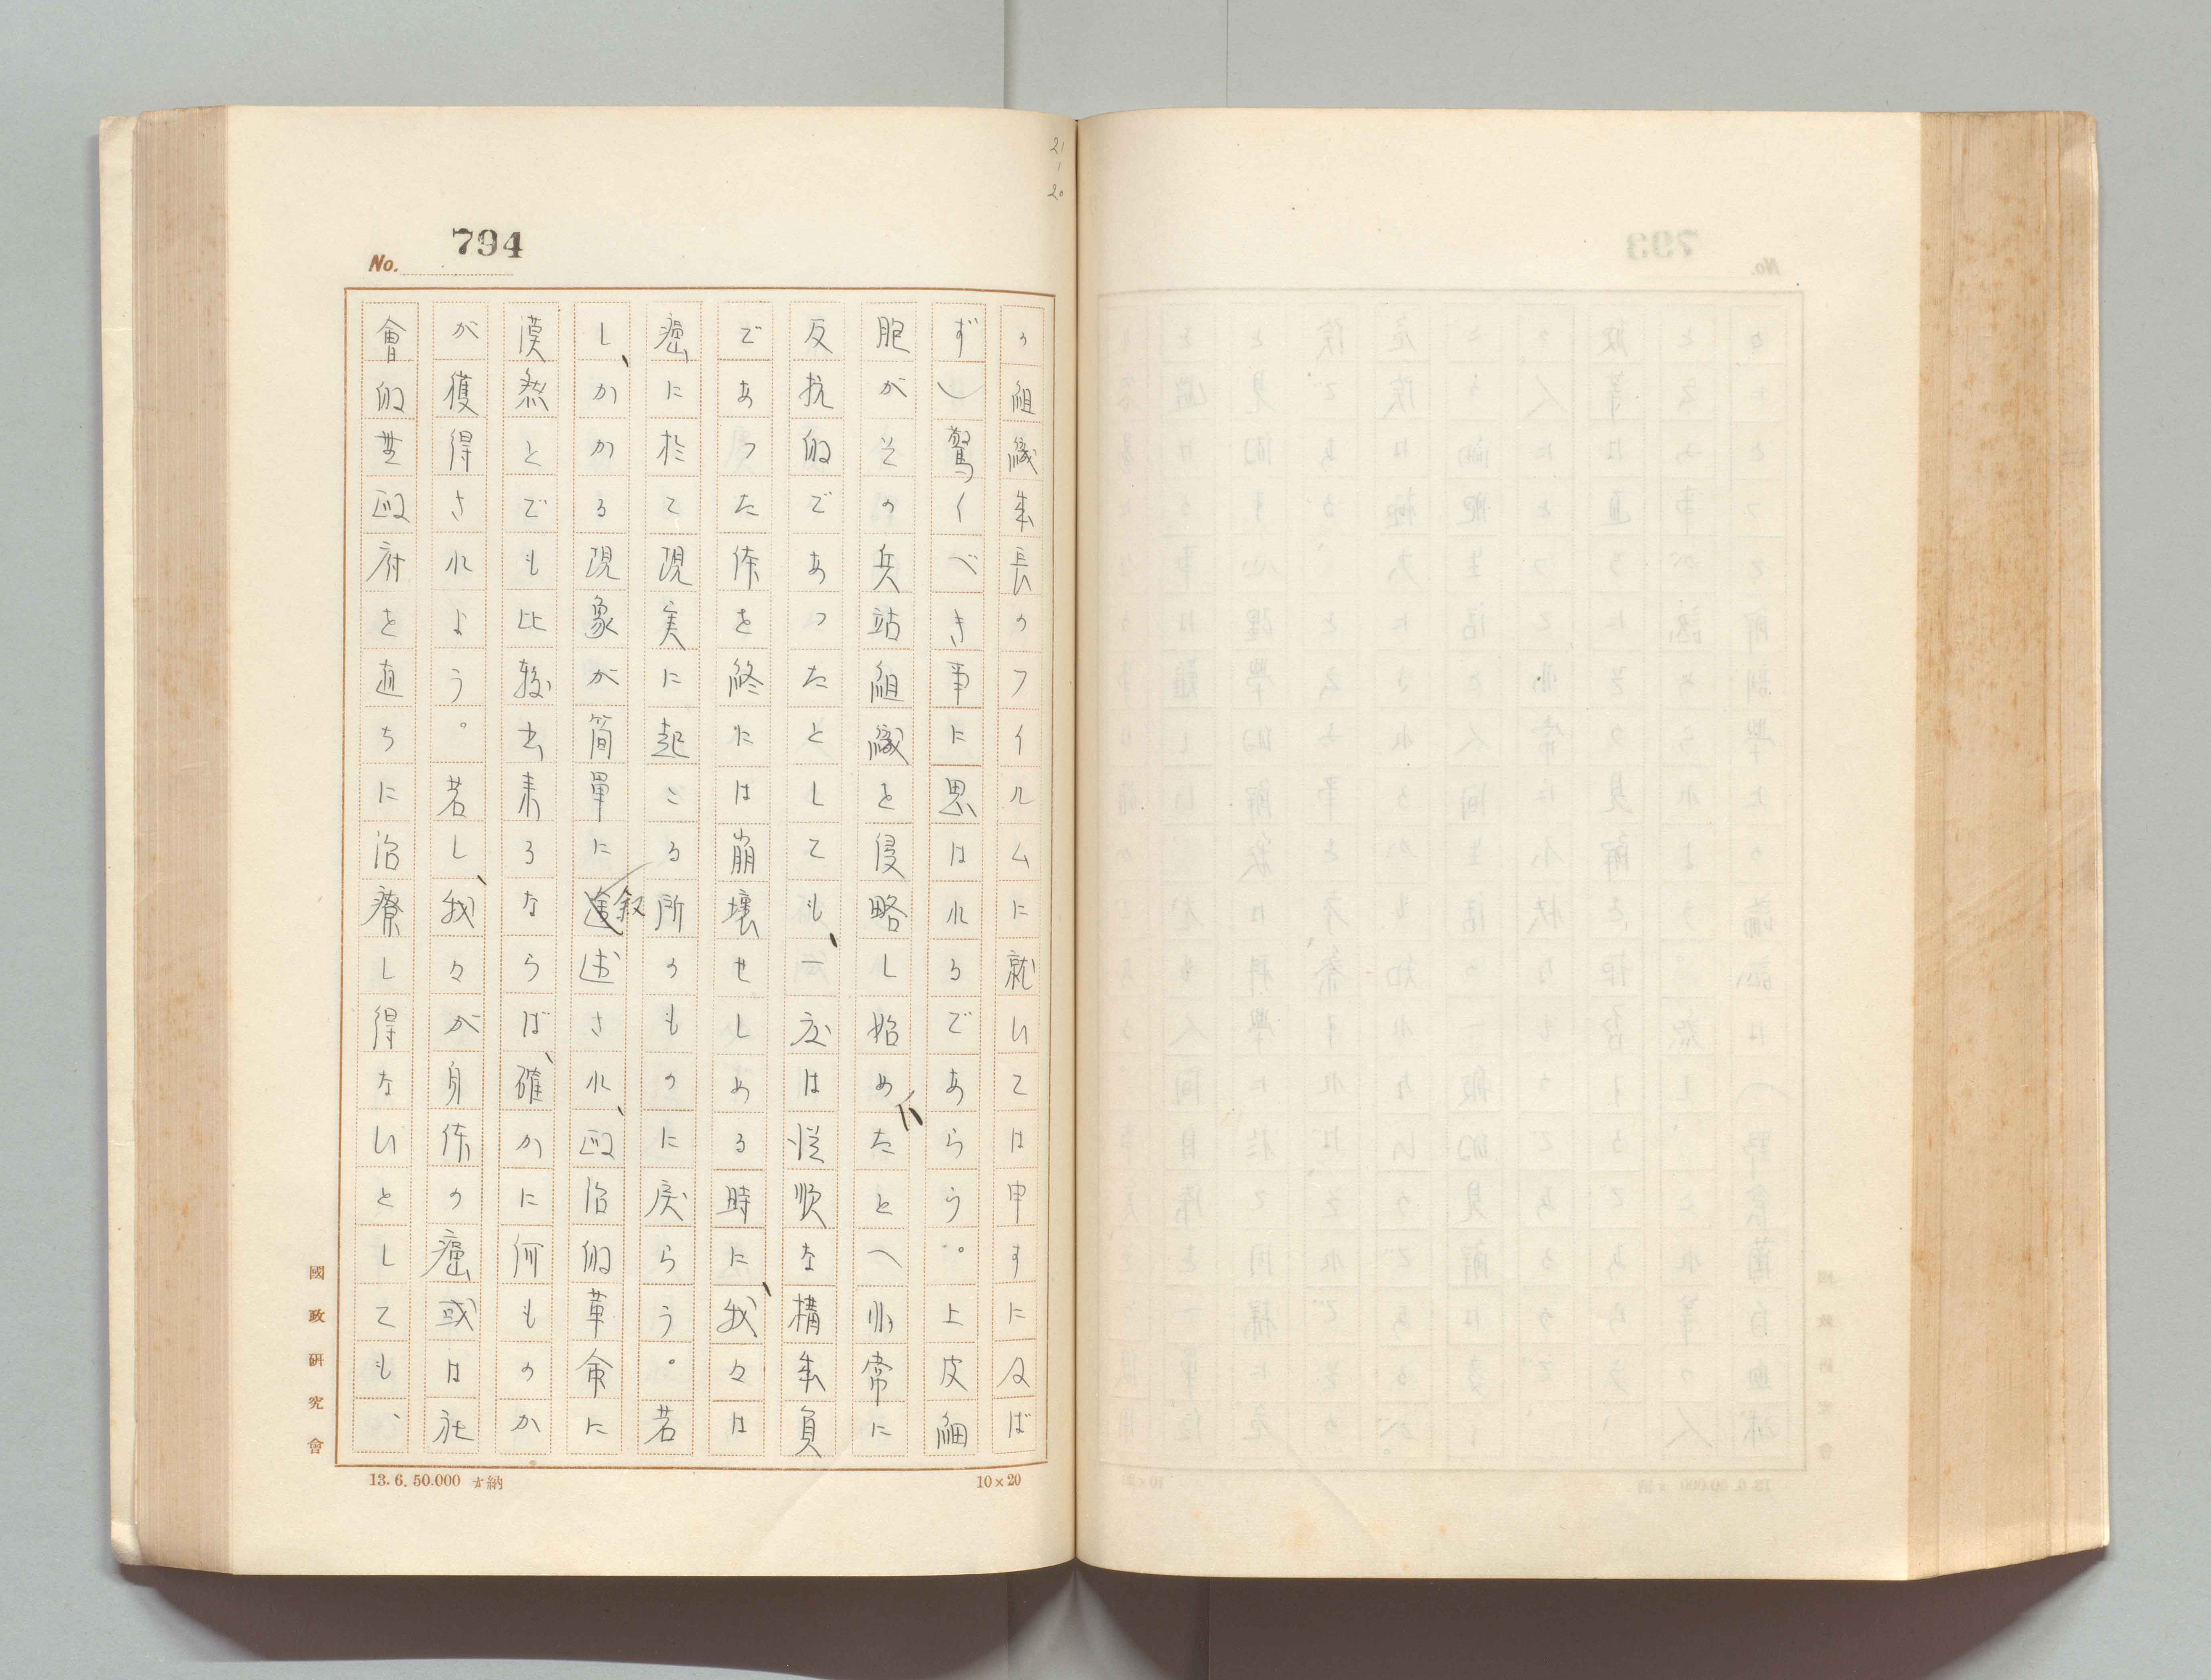 21
1
20
No. 794
の組織生長のフイルムに就いては申すに及ば
ず)驚くべき事に思はれるであらう。上皮細
胞がその兵站組織を侵略し始めたとへ非常に
反抗的であつたとしても、一度は従順な構成員
であつた体を終には崩壊せしめる時に、我々は
癌に於て現実に起こる所のものに戻らう。若
し、かかる現象が簡単に叙述され、政治的革命に
漠然とでも比較出来るならば、確かに何ものか
が獲得されよう。若し、我々が身体の癌或は社
會的無政府を直ちに治療し得ないとしても、
國政研究會
13.6.50.000 納
10×20